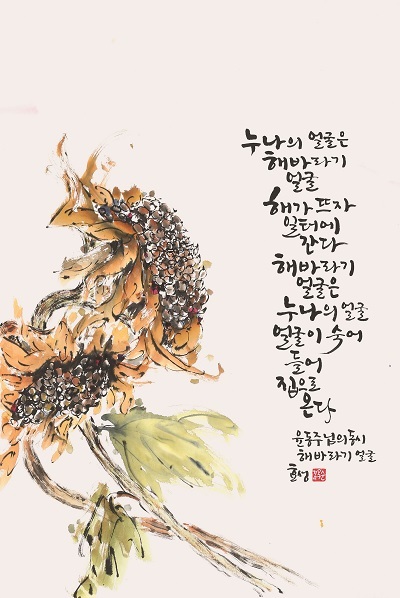 누나의 얼굴은
해바라기
얼굴
해가 뜨자
일터에
간다
해바라기
얼굴은
누나의 얼굴
얼굴이 숙어
들어
집으로
온다
윤동주님의 동시
해바라기 얼굴
효성